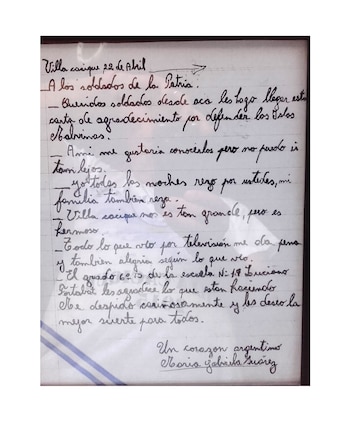 Villa cacique 22 de Abril
A los soldados de la Patria.
_ Queridos soldados desde aca les hago llegar esta
carta de agradecimiento por defender las Islas
Malvinas.
_ A mi me gustaria conocerlos pero no puedo ir
tan lejos.
_ yo todas las noches rezo por ustedes, mi
familia tambien reza.
_ Villa cacique no es tan grande, pero es
hermosa
_ Todo lo que veo por televisión me da pena
y tambien alegria según lo que veo.
_ El grado 6º B de la escuela Nº 19 Luciano
Fortabat les agradece lo que estan haciendo
Me despido cariñosamente y les deseo la
mejor suerte para todos.
Un corazon argentino
Maria Gabriela Suárez